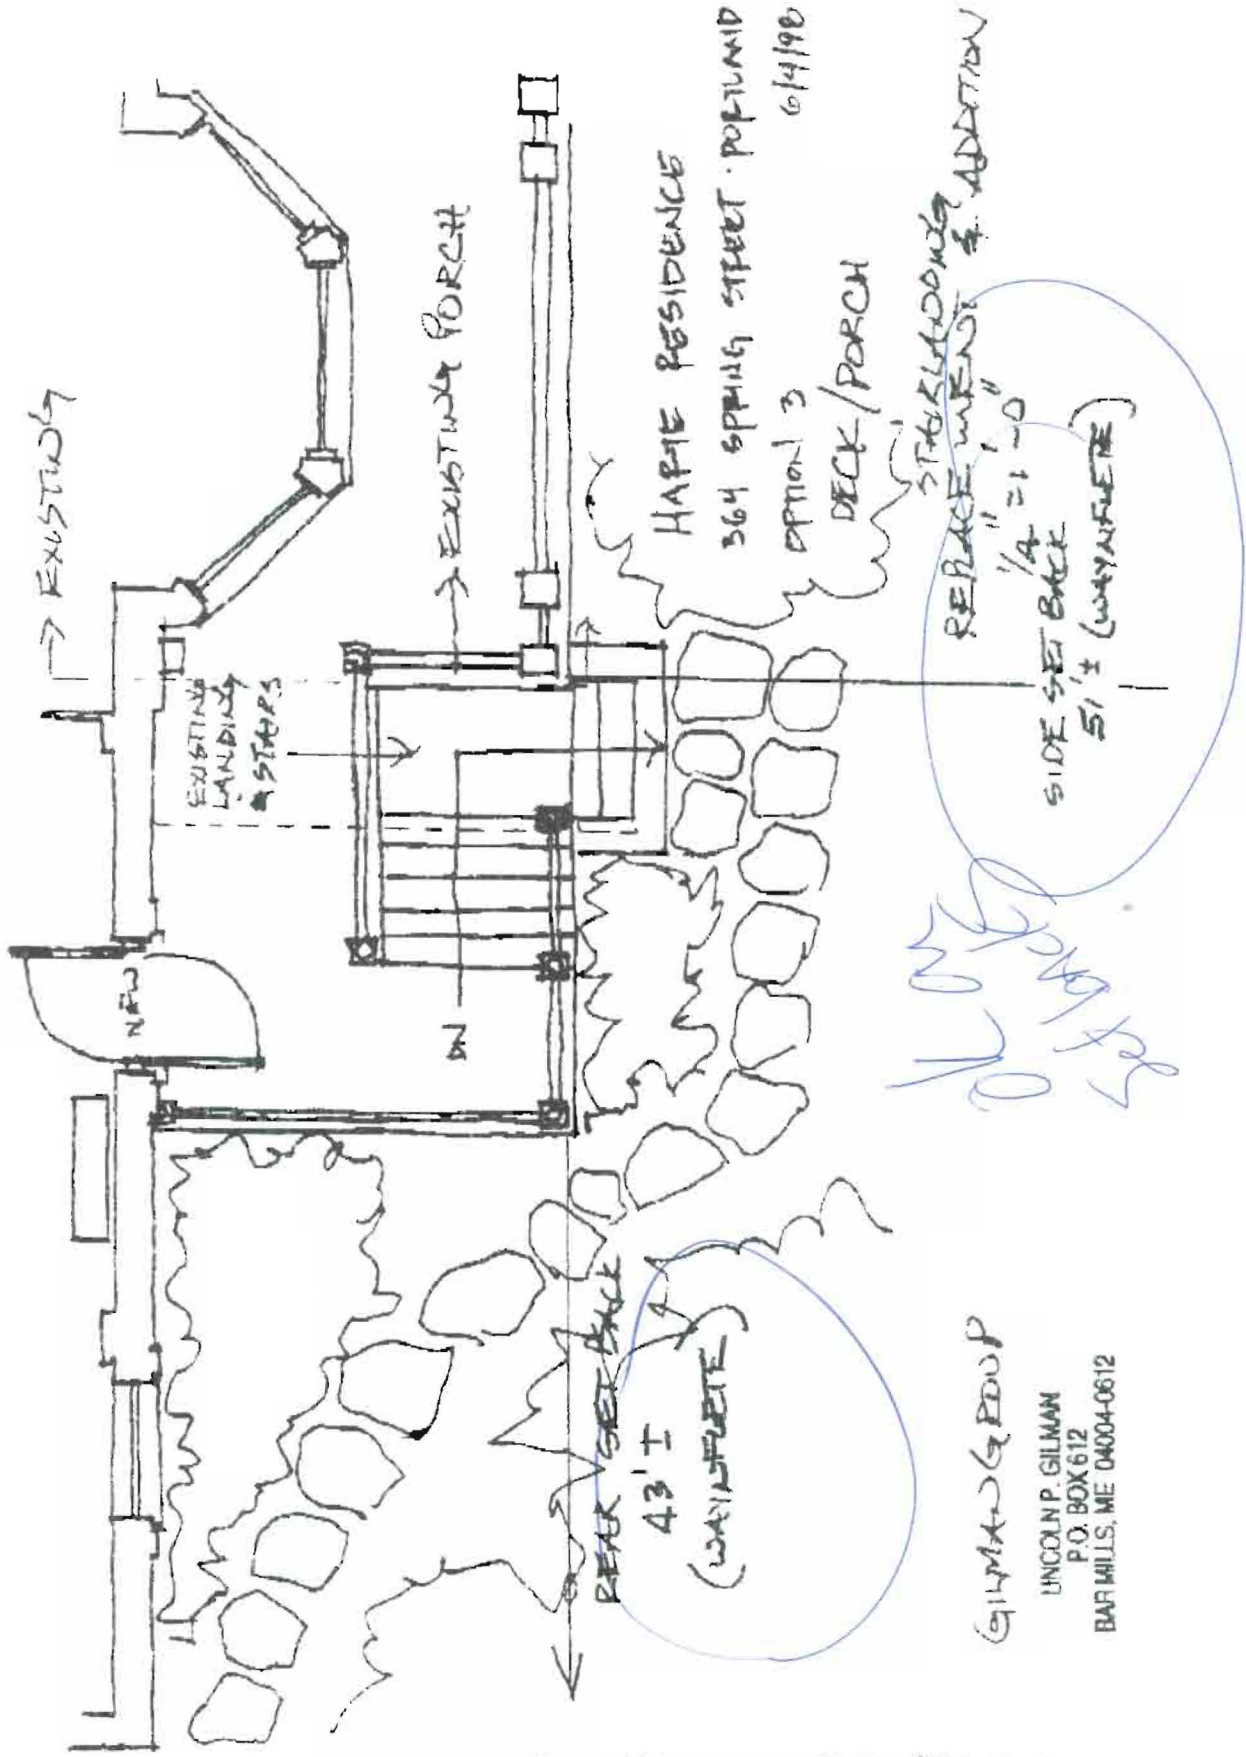 → EXISTING
EXISTING
LANDING
& STAIRS
→ EXISTING PORCH
NEW
DN
HARTE RESIDENCE
364 SPRING STREET · PORTLAND
OPTION 3 6/4/98
DECK/PORCH
REPLACE & ADDITION
1/4" = 1'-0"
SIDE SET BACK
51' ± (WAYNFLETE)
REAR SET BACK
43' ±
(WAYNFLETE)
GILMAN GROUP
LINCOLN P. GILMAN
P.O. BOX 612
BAR MILLS, ME 04004-0612